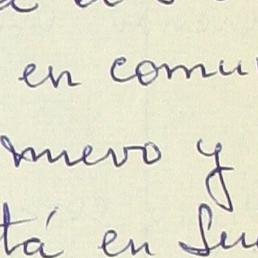 en comu
nuevo y
tá en Su